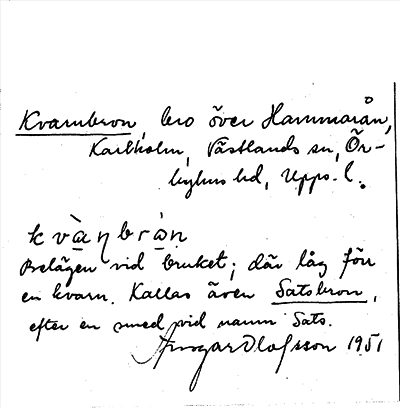 Kvarnbron, bro över Hammarån,
Karlholm, Västlands sn, Ör-
byhus hd, Upps. l.
kvàṇbròn
Belägen vid bruket; där låg förr
en kvarn. Kallas även Satsbron,
efter en smed vid namn Sats.
Ansgar Olofsson 1951